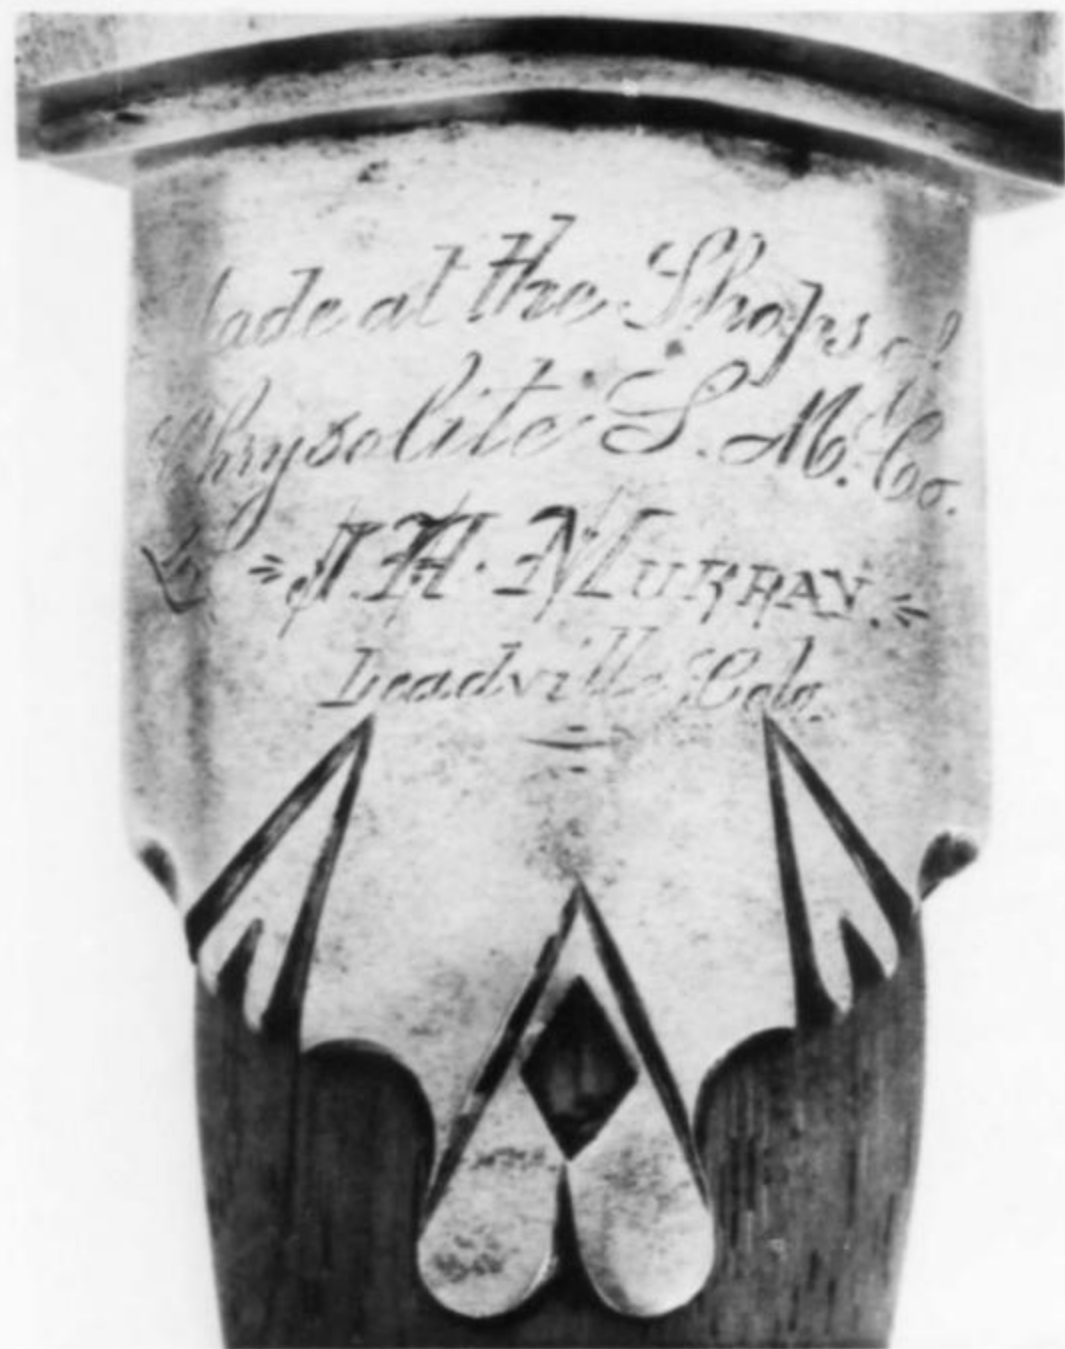 Made at the Shops of
Chrysolite S. M. Co.
By J. H. MURRAY.
Leadville Colo.